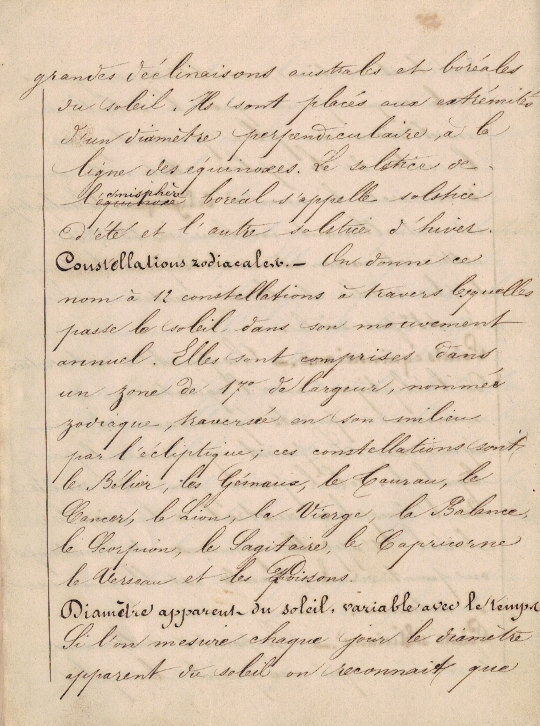 grandes déclinaisons australes et boréales
du soleil. Ils sont placés aux extrémités
d'un diamètre perpendiculaire, à la
ligne des équinoxes. Le solstice de
l'équinoxe emisphère boréal s'appelle solstice
d'été et l'autre solstice d'hiver.
Constellations zodiacales. — On donne ce
nom à 12 constellations à travers lesquelles
passe le soleil dans son mouvement
annuel. Elles sont comprises dans
un zone de 17° de largeur, nommée
zodiaque, traversée en son milieu
par l'écliptique; ces constellations sont,
le Bélier, les Gémeaux, le Taurau, le
Cancer, le Lion, la Vierge, la Balance,
le Scorpion, le Sagitaire, le Capricorne
le Verseau et les Poissons.
Diamètre apparent du soleil, variable avec le temps
Si l'on mesure chaque jour le diamètre
apparent du soleil on reconnait que